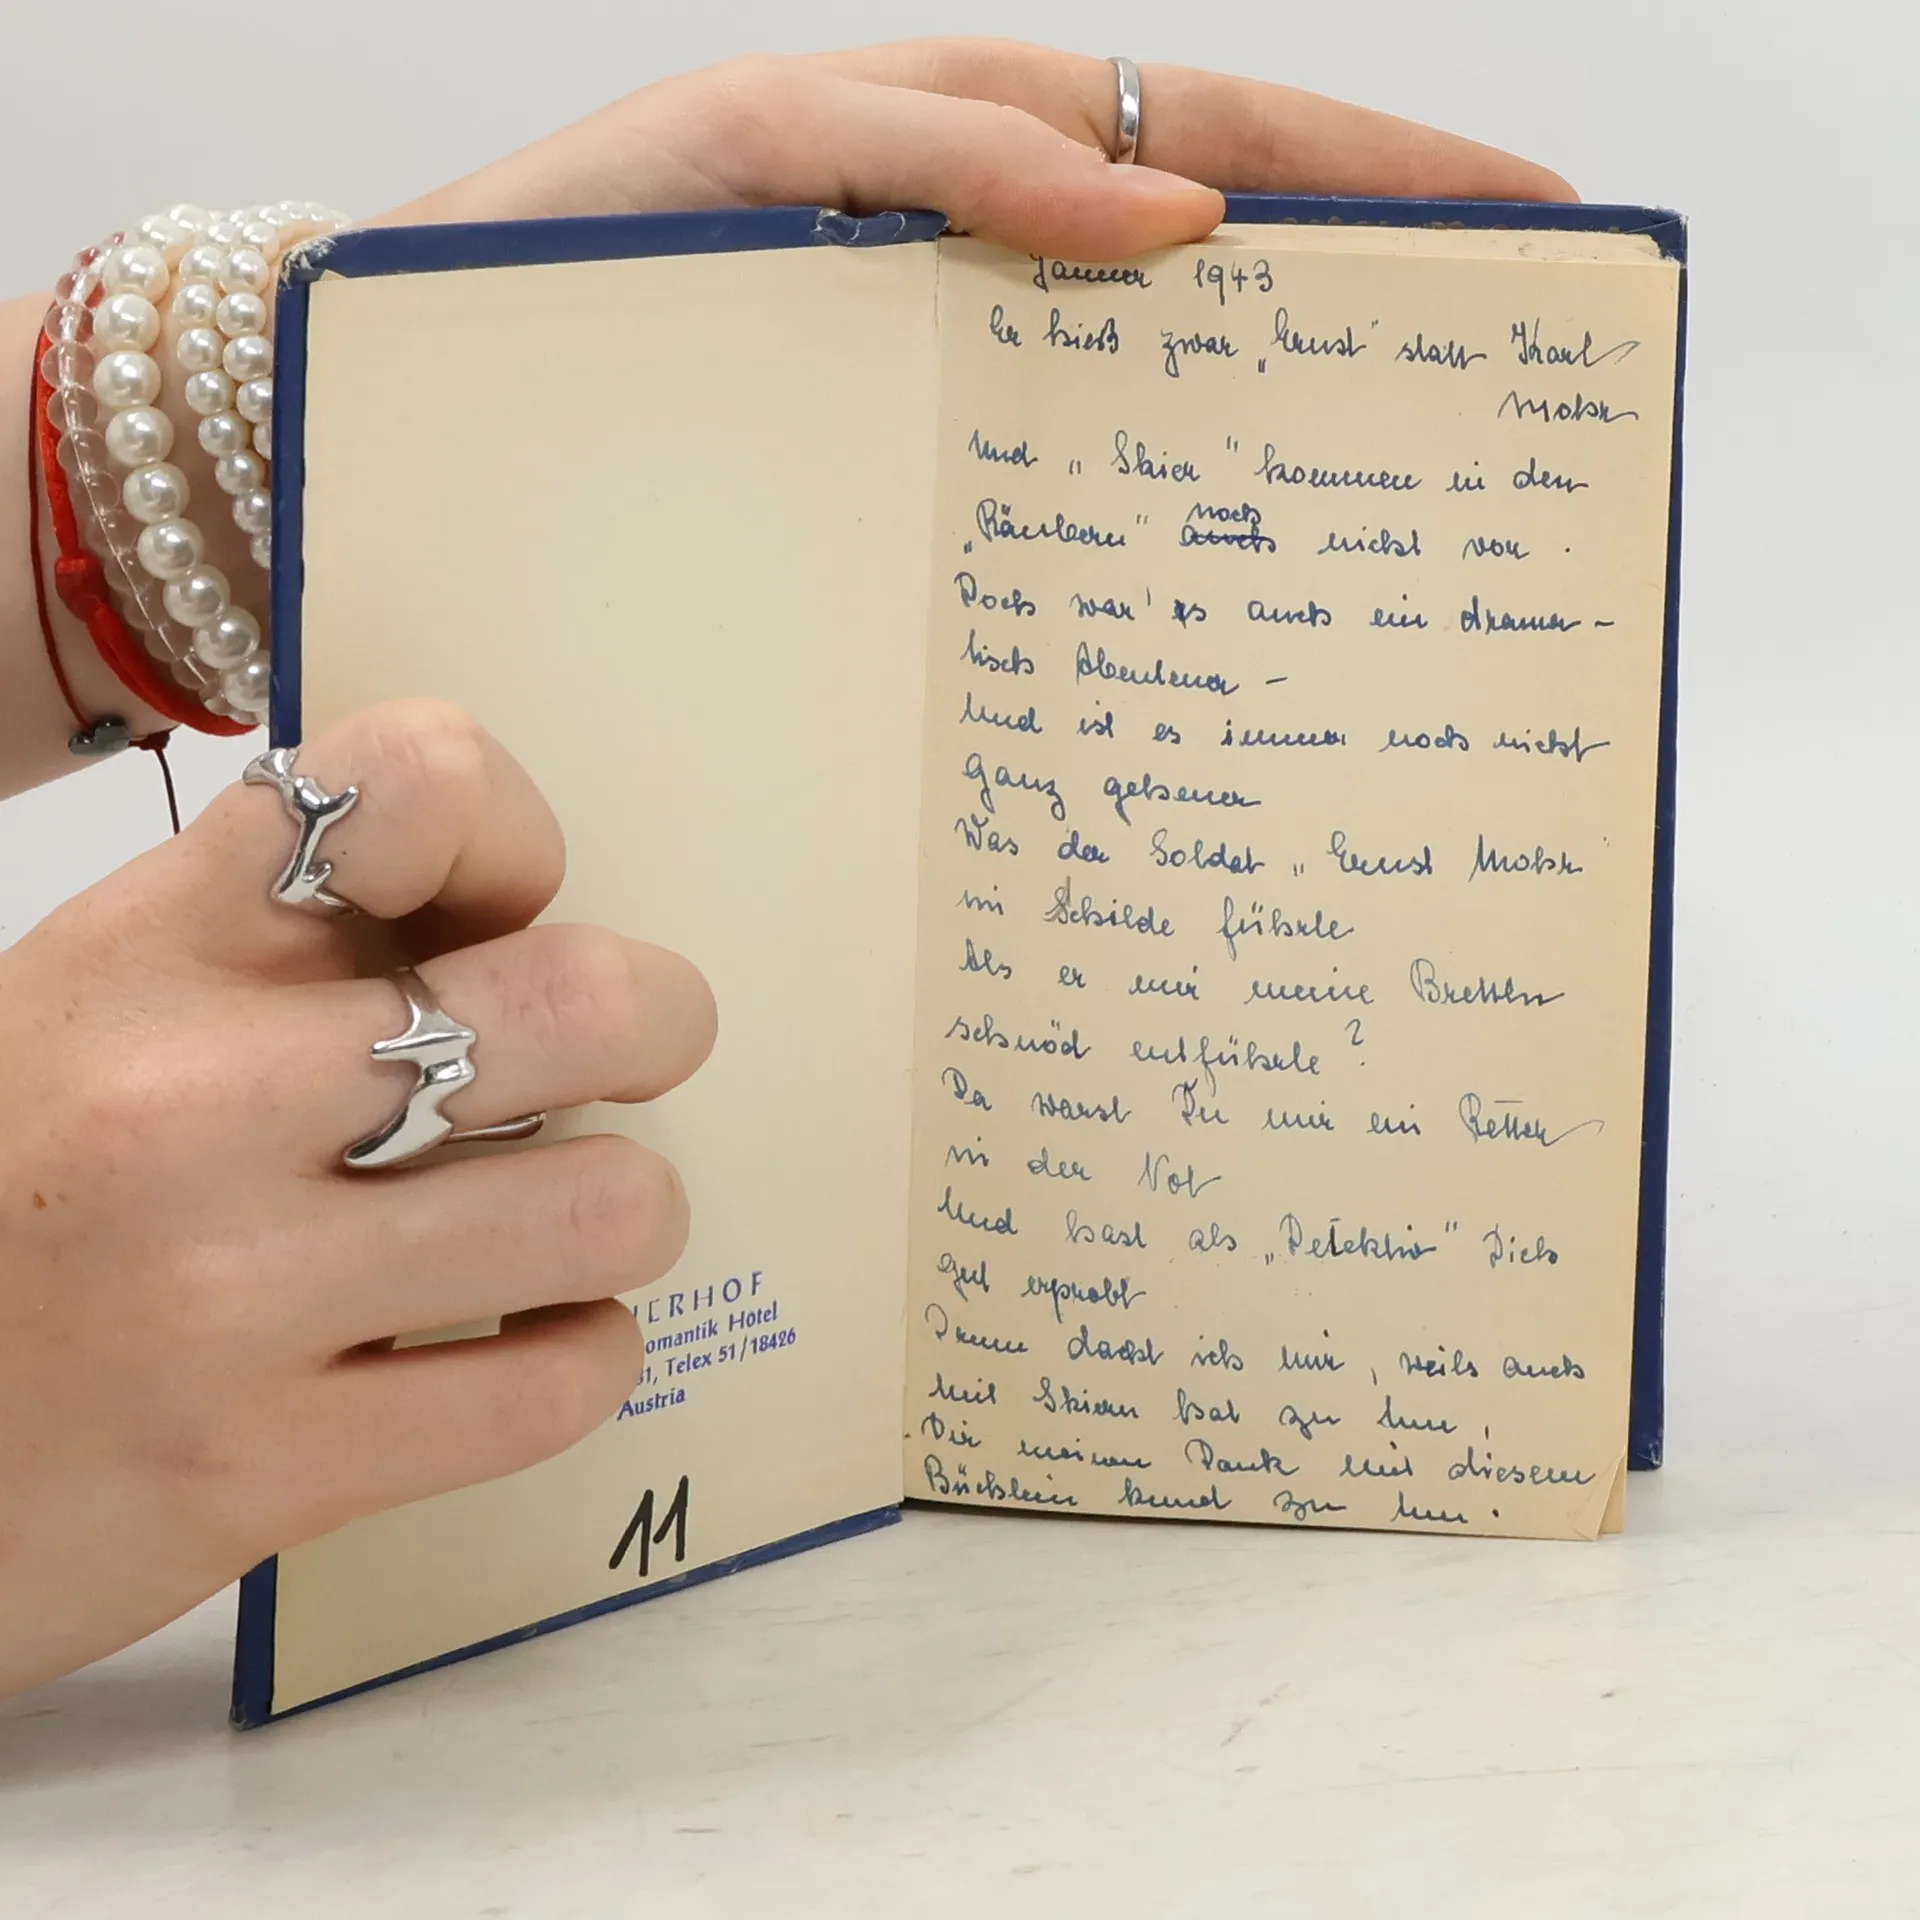 Jänner 1943
Er hieß zwar „Ernst“ statt Karl
Mohr
Und „Skier“ kommen in den
„Räubern“ auch noch nicht vor.
Doch war's es auch ein drama-
tisch Abenteuer –
Und ist es immer noch nicht
Ganz geheuer
Was der Soldat „Ernst Mohr“
im Schilde führte
Als er mir meine Bretteln
schnöd entführte?
Da warst Du mir ein Retter
in der Not
Und hast als „Detektiv“ Dich
gut erprobt
Drum dacht ich mir, weils auch
mit Skiern hat zu tun,
Dir meinen Dank mit diesem
Büchlein kund zu tun.
ERHOF
omantik Hotel
31, Telex 51/18426
Austria
11